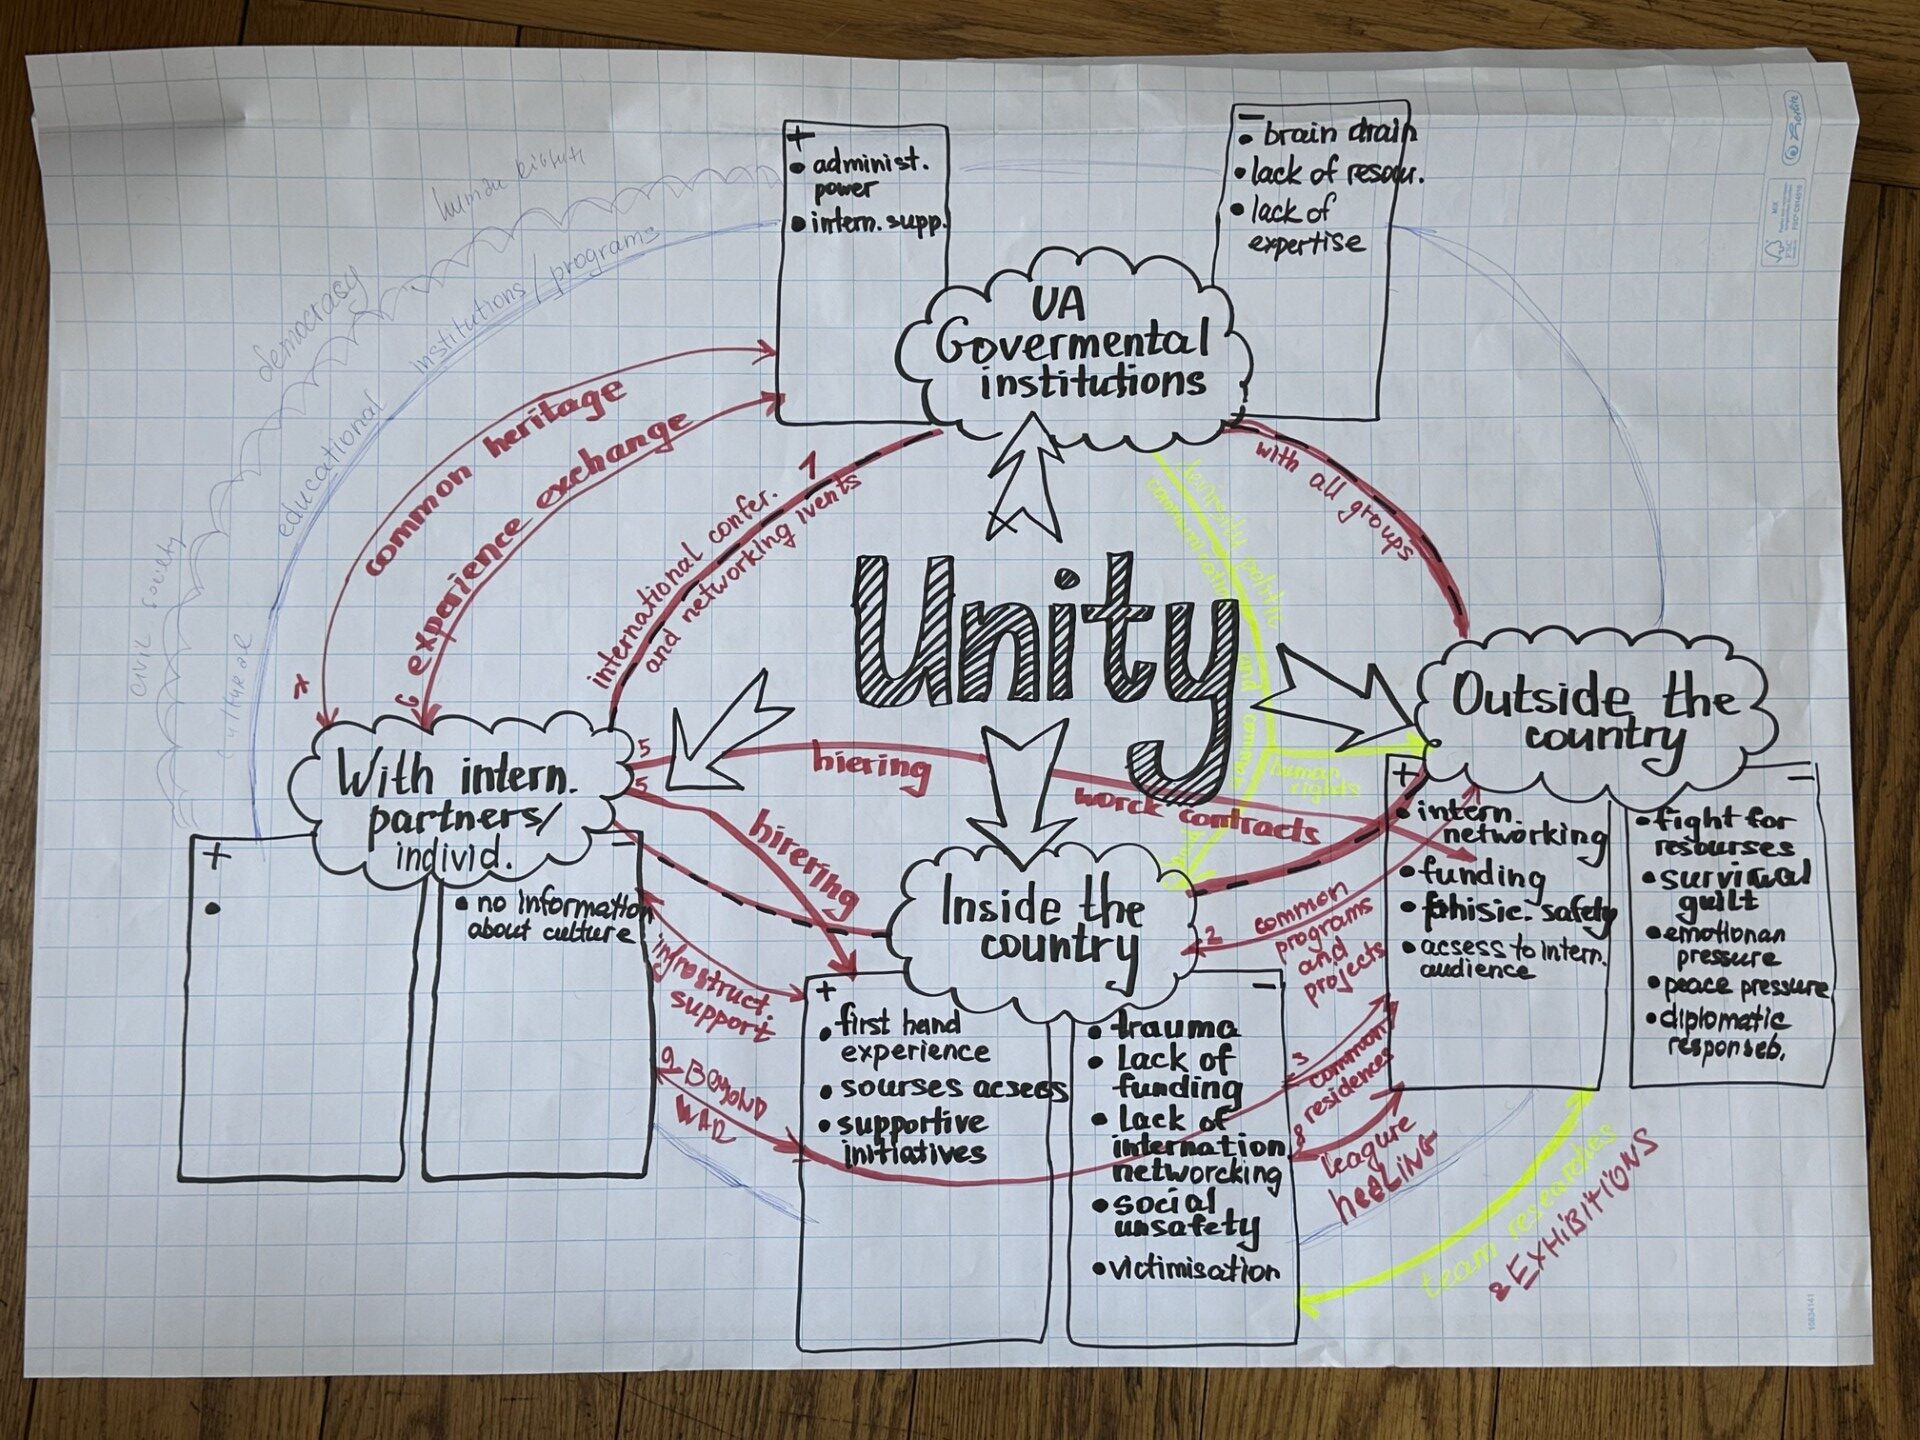 +
• administ.
power
• intern. supp.
–
• brain drain
• lack of resour.
• lack of
expertise
UA
Govermental
institutions
human
democracy
institutions / programs
educational
civil society
cultural
common heritage
6 experience exchange
1
international confer.
and networking ivents
with all groups
diversity
communication
and
human
rights
Unity
With intern.
partners/
individ.
+
•
–
• no information
about culture
5
hiering
worck contracts
5
hirering
infrostruct.
support
9 BEYOND
WAR
Outside the
country
+
• intern.
networking
• funding
• fhisic. safety
• acsess to intern.
audience
–
• fight for
resourses
• surviwal
guilt
• emotionan
pressure
• peace pressure
• diplomatic
responseb.
Inside the
country
+
• first hend
experience
• sourses acsees
• supportive
initiatives
–
• trauma
• Lack of
funding
• Lack of
internation
networcking
• social
unsafety
• victimisation
2 common
programs
and
projects
3
common
residences
8
leagure
heaLiNG
team researches
& EXHiBiTiONS